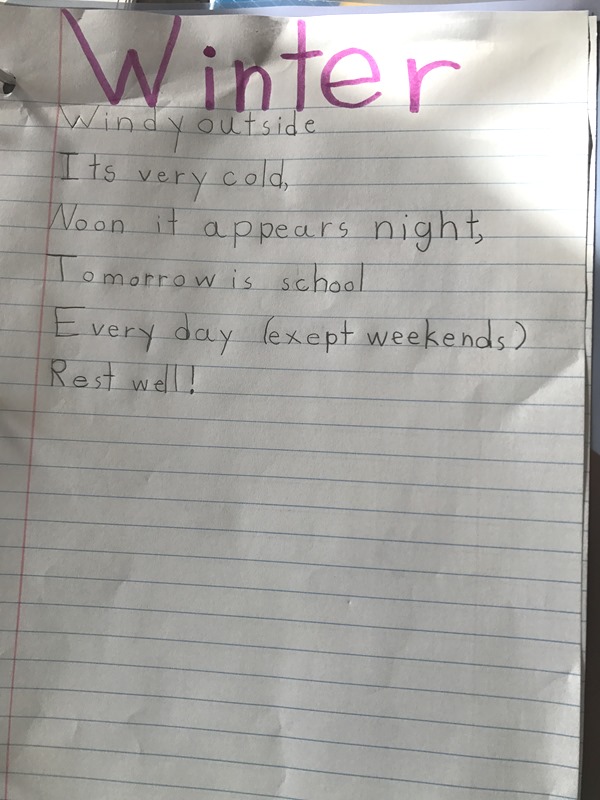 Winter
Windy outside
Its very cold,
Noon it appears night,
Tomorrow is school
Every day (exept weekends)
Rest well!